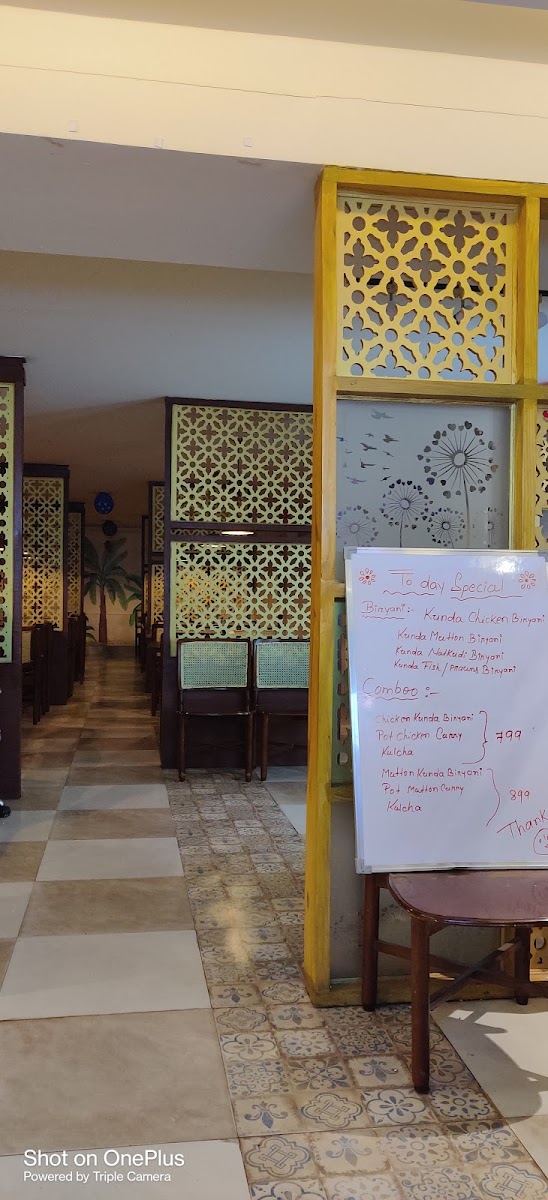 To day Special
Biryani:- Kunda Chicken Biryani
Kunda Mutton Biryani
Kunda Natkudi Biryani
Kunda Fish/prawns Biryani
Comboo:-
Chicken Kunda Biryani
Pot Chicken Curry 799
Kulcha
Mutton Kunda Biryani
Pot Mutton Curry 899
Kulcha
Thank
Shot on OnePlus
Powered by Triple Camera